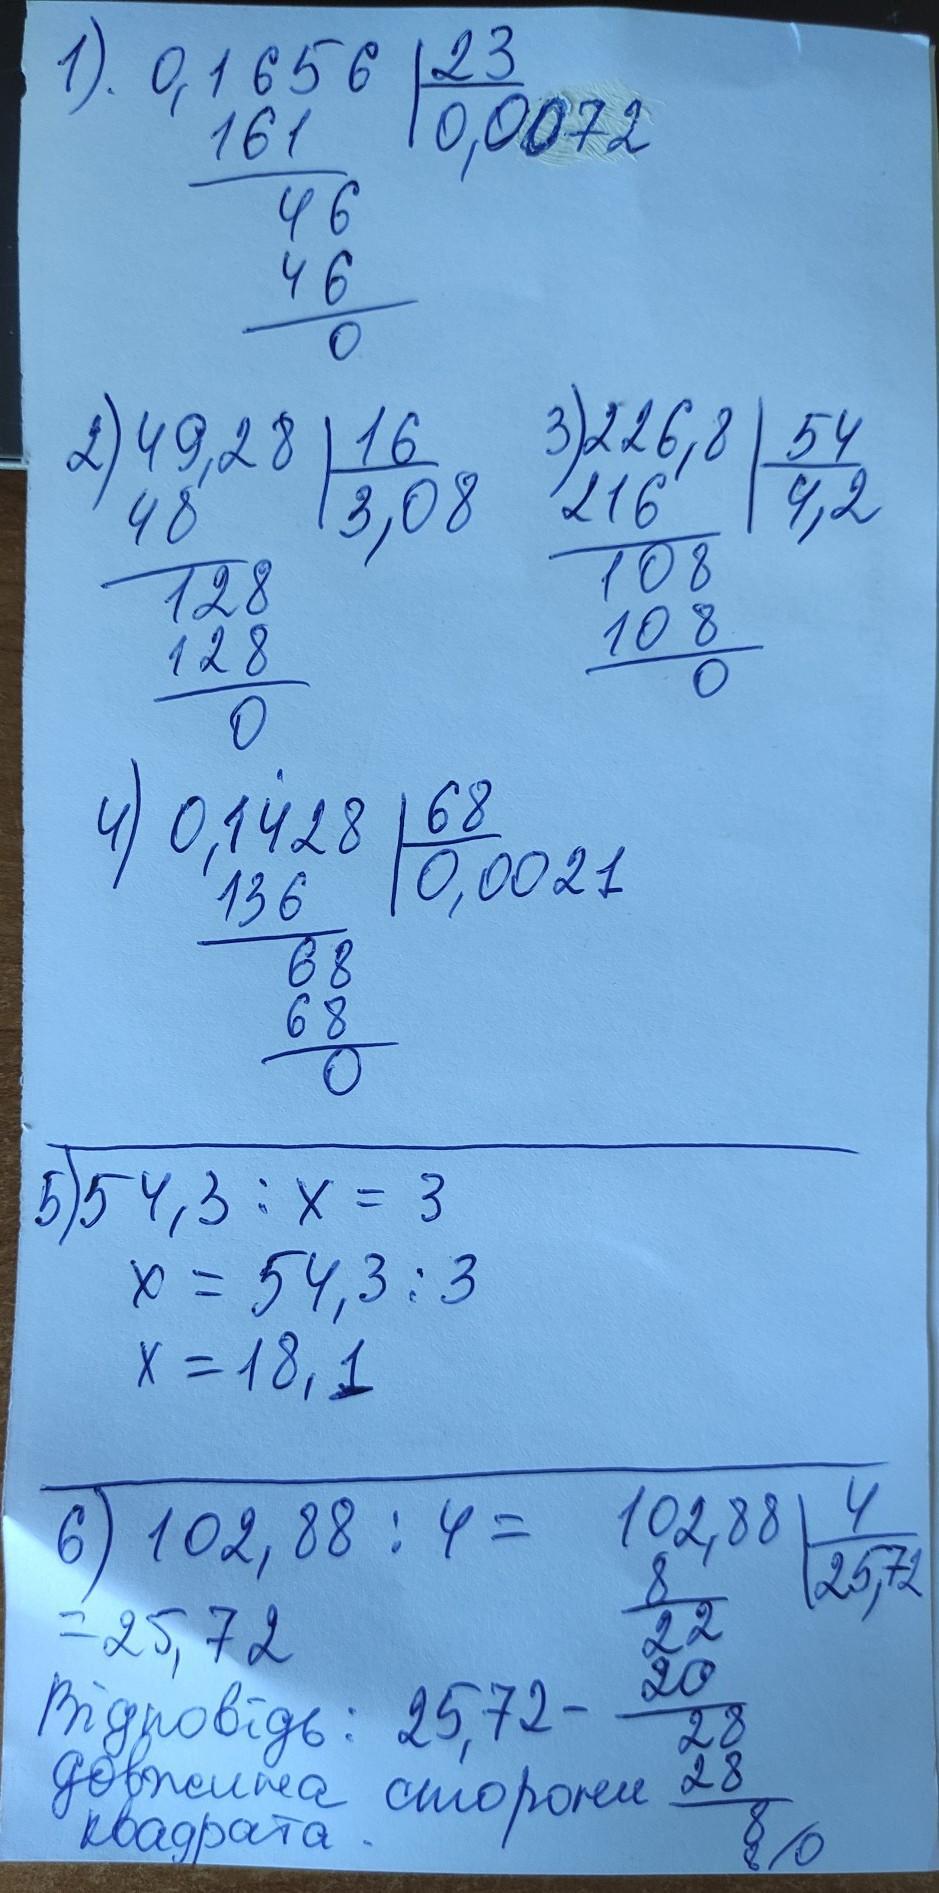 1). 0,1656 23
161 0,0072
46
46
0
2) 49,28 16
48 3,08
128
128
0
3) 226,8 54
216 4,2
108
108
0
4) 0,1428 68
136 0,0021
68
68
0
5) 54,3 : x = 3
x = 54,3 : 3
x = 18,1
6) 102,88 : 4 =
= 25,72
102,88 4
8 25,72
22
20
28
28
8
8
0
Відповідь: 25,72 -
довжина сторони
квадрата.